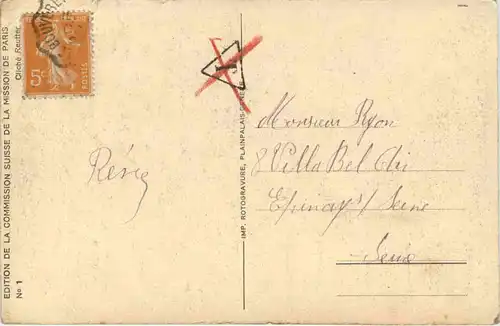 EDITION DE LA COMMISSION SUISSE DE LA MISSION DE PARIS
Cliché Reutter
No 1
5c
POSTES
T
IMP. ROTOGRAVURE, PLAINPALAIS-GENÈVE
Monsieur Ryon
8 Villa Bel Air
Epinay s/ Seine
Seine